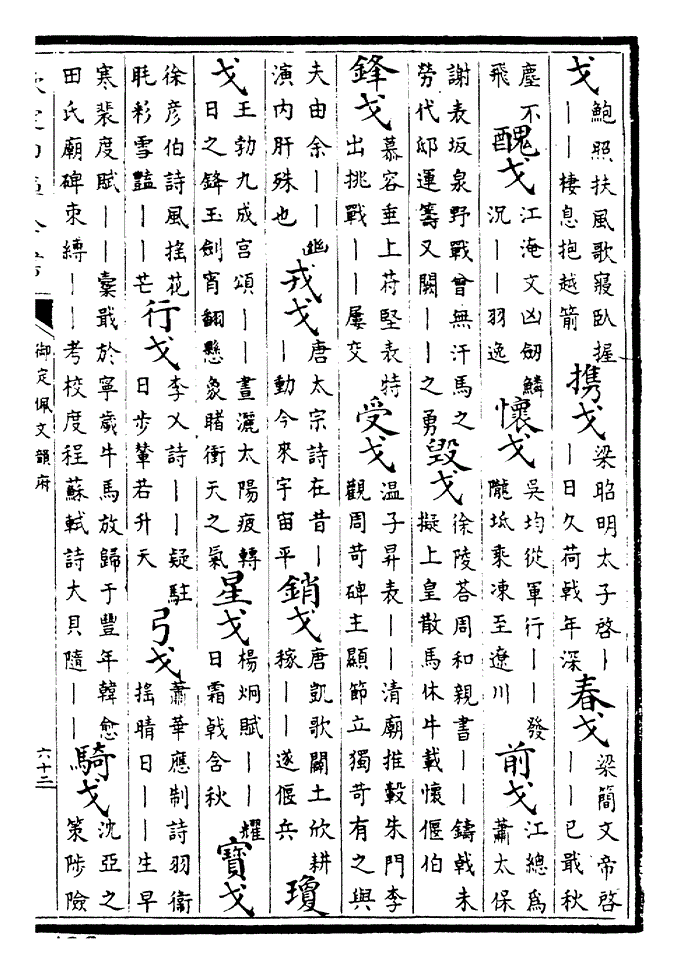 戈
鮑照扶風歌寢臥握
——棲息抱越箭
携戈
梁昭明太子啓—
—日久荷戟年深
春戈
梁簡文帝啓
——已戢秋
塵不
飛
醜戈
江淹文凶劒鱗
况——羽逸
懷戈
吳均從軍行——發
隴坻乘凍至遼川
前戈
江總爲
蕭太保
謝表坂泉野戰曾無汗馬之
勞代邸運籌又闕——之勇
毀戈
徐陵荅周和親書——鑄戟未
擬上皇散馬休牛載懷偃伯
鋒戈
慕容垂上苻堅表特
出挑戰——屢交
受戈
温子昇表——清廟推轂朱門李
觀周苛碑主顯節立獨苛有之與
夫由余——幽
演内肝殊也
戎戈
唐太宗詩在昔—
—動今來宇宙平
銷戈
唐凱歌闢土欣耕
稼——遂偃兵
瓊
戈
王勃九成宫頌——晝灑太陽疲轉
日之鋒玉劍宵翻懸象睹衝天之氣
星戈
楊炯賦——耀
日霜戟含秋
寶戈
徐彦伯詩風摇花
眊彩雪豔——芒
行戈
李乂詩——疑駐
日步輦若升天
弓戈
蕭華應制詩羽衞
摇晴日——生早
寒裴度賦——櫜戢於寧歲牛馬放歸于豐年韓愈
田氏廟碑朿縛——考校度程蘇軾詩大貝隨——
騎戈
沈亞之
策陟險
御定佩文韻府
六十二